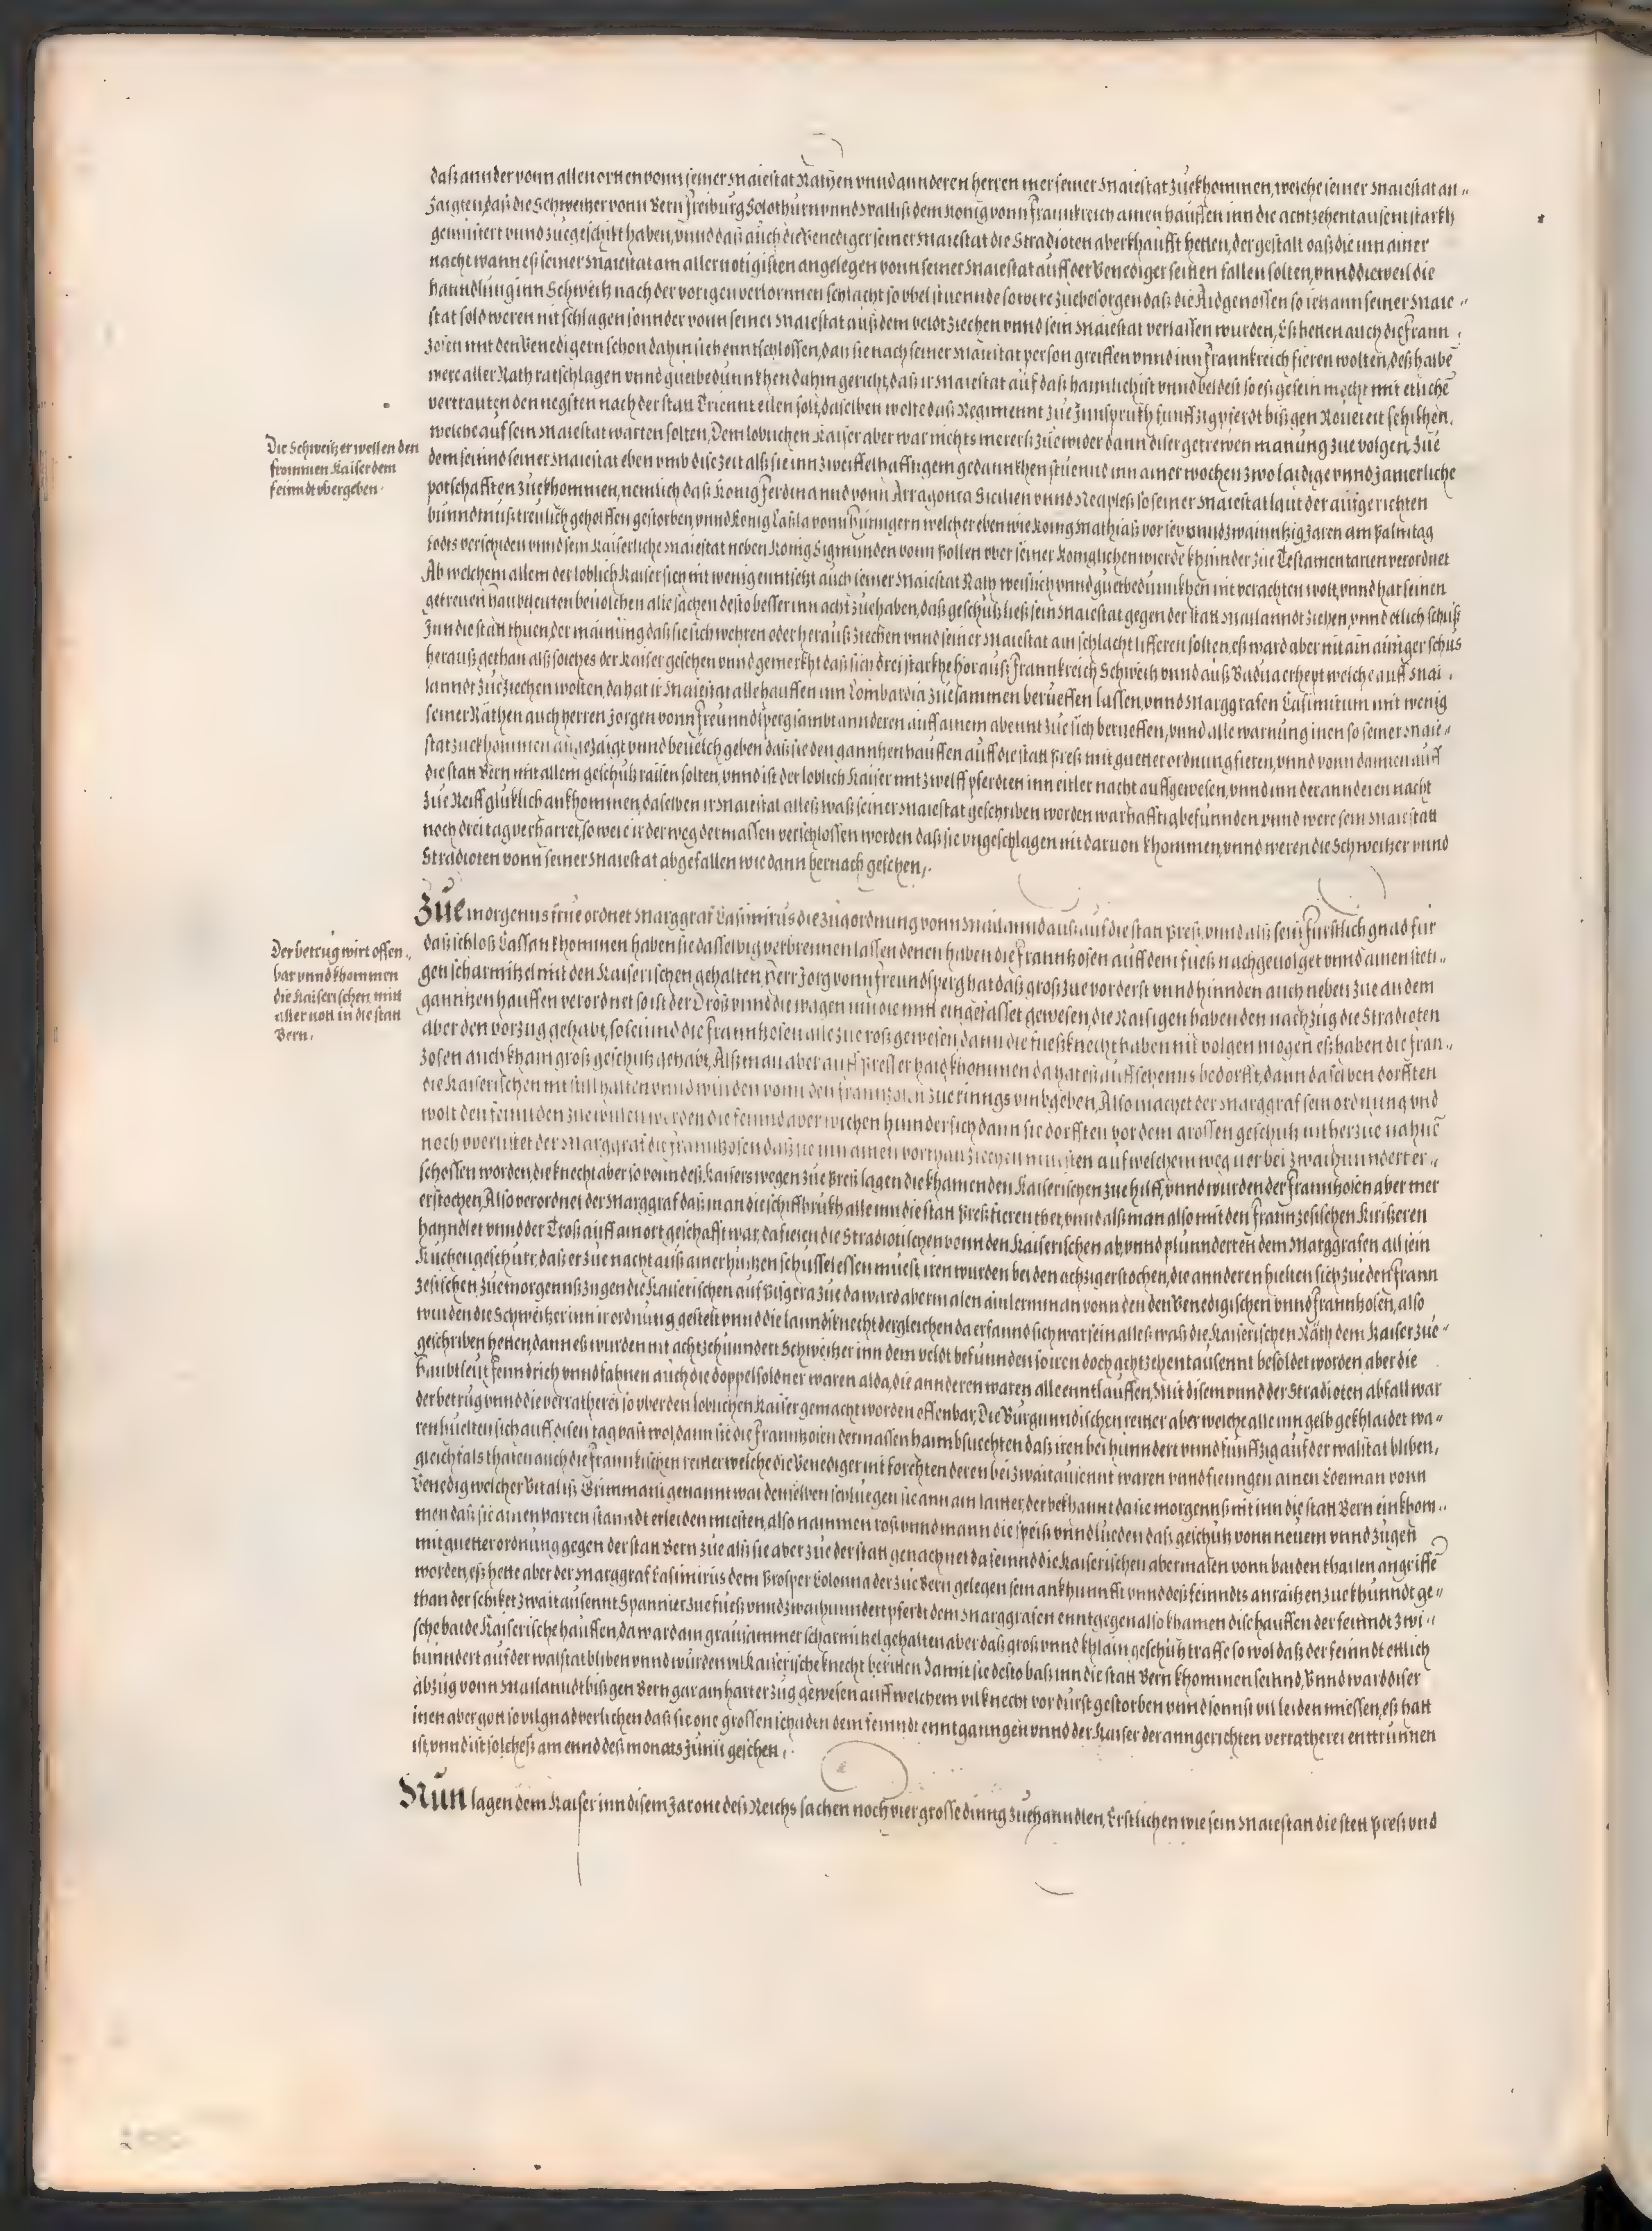 daß annder vonn allen orten vonn seiner Maiestat Räthen vnnd annderen herren mer seiner Maiestat zuekhommen, welche seiner Maiestat an„
zaigten, daß die Schweitzer vonn Bern Freiburg Solothurn vnnd Wallis dem König vonn Frannkreich ainen hauffen inn die achtzehentausent starkh
gemustert vnnd zuegeschikt haben, vnnd daß auch die Venediger seiner Maiestat die Stradioten aberkhaufft hetten, der gestalt daß die inn ainer
nacht wann es seiner Maiestat am aller notigisten angelegen vonn seiner Maiestat auff der Venediger seitten fallen solten, vnnd dieweil die
hanndlung inn Schweitz nach der vorigen verlornnen schlacht so vbel stuennde so were zuebesorgen daß die Aidgenossen so ietz ann seiner Maie„
stat sold weren nit schlagen sonnder vonn seiner Maiestat auß dem veldt ziechen vnnd sein Maiestat verlassen wurden, Es hetten auch die Frann„
zosen mit den Venedigern schon dahin sich enntschlossen, das sie nach seiner Maiestat person greiffen vnnd inn Frannkreich fieren wolten, deßhalbē
were aller Rath ratschlagen vnnd guetbedunnkhen dahin gericht, daß ir Maiestat auf daß haimlichist vnnd beldest so es gesein mecht mit etlichē
vertrauten den negsten nach der statt Trient eilen solt, daselben wolte daß Regimennt zue Innspruckh funffzig pferdt biß gen Rouereit schikhen,
welche auf sein Maiestat warten solten, Dem loblichen Kaiser aber war nichts merers zue wider dann diser getrewen manung zue volgen, Zue
dem seinnd seiner Maiestat eben vmb dise zeit alß sie inn zweiffelhafftigem gedannkhen stuennd inn ainer wochen zwo laidige vnnd Jamerliche
potschafften zuekhommen, nemlich daß König Ferdinannd vonn Arragonia Sicilien vnnd Neapleß so seiner Maiestat laut der aufgerichten
bunndtnuß treulich geholffen gestorben, vnnd König Laßla vonn Hungern welcher eben wie König Mathiaß vor sex vnnd zwainntzig Jaren am Palmtag
todts verschiden vnnd sein Kaiserliche Maiestat neben König Sigmunden vonn Pollen vber seiner Königlichen wierde khinnder zue Testamentarien verordnet
Ab welchem allem der loblich Kaiser sich nit wenig enntsetzt auch seiner Maiestat Räth weislich vnnd guetbedunnkhen nit verachten wolt, vnnd hat seinen
getreuen Haubtleuten beuolchen alle sachen desto besser inn acht zuehaben, daß geschutz ließ sein Maiestat gegen der statt Mailanndt ziehen, vnnd etlich schuß
Inn die statt thuen, der mainung daß sie sich wehren oder herauß ziechen vnnd seiner Maiestat ain schlacht lifferen solten, es ward aber nit ain ainiger schus
herauß gethan alß solches der Kaiser gesehen vnnd gemerkht daß sich drei starkhe hör auß Frannkreich Schweitz vnnd auß Badua erhept welche auff Mai„
lanndt zueziechen wolten, da hat ir Maiestat alle hauffen inn Lombardia zuesammen berueffen lassen, vnnd Marggrafen Casimirum mit wenig
seiner Räthen auch herren Jorgen vonn Freunndsperg sambt annderen auff ainem abennt zue sich berueffen, vnnd alle warnung inen so seiner Maie„
stat zuekhommen angezaigt vnnd beuelch geben daß sie den ganntzen hauffen auff die statt Preß mit guetter ordnung fieren, vnnd vonn dannen auff
die statt Bern mit allem geschutz raisen solten, vnnd ist der loblich Kaiser mit zwelff pferdten inn eitler nacht auff gewesen, vnnd inn der annderen nacht
zue Reiff gluklich ankhommen, daselben ir Maiestat alleß waß seiner Maiestat geschriben worden warhafftig befunnden vnnd were sein Maiestatt
noch drei tag verharret, so were ir der weg dermassen verschlossen worden daß sie vngeschlagen nit daruon khommen, vnnd weren die Schweitzer vnnd
Stradioten vonn seiner Maiestat abgefallen wie dann hernach geschen,
Die Schweitzer wellen den
frommen Kaiser dem
feinndt vbergeben.
Zue morgenns frue ordnet Marggraf Casimirus die zugordnung vonn Mailannd auß auf die statt Preß, vnnd alß sein Furstlich gnad fur
daß schloß Cassan khommen haben sie dasselbig verbrennen lassen denen haben die Franntzosen auff dem fueß nachgeuolget vnnd ainen steti„
gen scharmitzel mit den Kaiserischen gehalten, Herr Jorg vonn Freundsperg hat daß groß zue vorderst vnnd hinnden auch neben zue an dem
ganntzen hauffen verordnet so ist der Troß vnnd die wagen inn die mitt eingefasset gewesen, die Raisigen haben den nachzug die Stradioten
aber den vorzug gehabt, so seinnd die Franntzosen alle zue roß gewesen, dann die fueßknecht haben nit volgen mogen es haben die Fran„
zosen auch khain groß geschutz gehabt, Alß man aber auff Presser haid khommen da hat es auffsehenns bedorfft, dann daselben dorfften
die Kaiserischen nit still halten vnnd wurden vonn den Franntzosen zue rinngs vmbgeben, Also machet der Marggraf sein ordnung vnd
wolt den feinnden zue willen werden die feinnd aber wichen hinnder sich dann sie dorfften vor dem grossen geschutz nit herzue nahnē
noch vberlistet der Marggraf die Franntzosen daß sie inn ainen vorthail ziechen muesten auf welchem weg ir bei zwaihunndert er„
schossen worden, die knecht aber so vonn deß Kaisers wegen zue Preß lagen die khamen den Kaiserischen zue hilff, vnnd wurden der Franntzosen aber mer
erstochen, Also verordnet der Marggraf daß man die schiffbrukh alle inn die statt Preß fieren thet, vnnd alß man also mit den Frannzesischen Kurißeren
hanndlet vnnd der Troß auff ain ort geschafft war, da fielen die Stradiotischen vonn den Kaiserischen ab, vnnd plunnderten dem Marggrafen all sein
Kuchen geschirr, daß er zue nacht auß ainer hultzen schussel essen muest, iren wurden bei den achzig erstochen, die annderen hielten sich zue den Frann
zesischen, zue morgenns zugen die Kaiserischen auf Busgera zue da ward abermalen ain lerman vonn den Venedigischen vnnd Franntzosen, also
wurden die Schweitzer inn ir ordnung gestelt vnnd die lanndsknecht dergleichen da erfannd sich war sein alleß waß die Kaiserischen Räth dem Kaiser zue„
geschriben hetten, dann es wurden nit achtzehunndert Schweitzer inn dem veldt befunnden so iren doch achtzehen tausennt besoldet worden aber die
Haubtleut fenndrich vnnd fahnen auch die doppelsoldner waren alda, die annderen waren alle enntlauffen, Mit disem vnnd der Stradioten abfall war
der betrug vnnd die verratherei so vber den loblichen Kaiser gemacht worden offenbar, Die Burgunndischen reitter aber welche alle inn gelb gekhlaidet wa„
ren huelten sich auff disen tag vast wol, dann sie die Franntzosen dermassen haimbsuechten daß iren bei hunndert vnnd funffzig auf der walstat bliben,
gleichfals thaten auch die Frannkischen reitter welche die Venediger mit forchten deren bei zwaitausennt waren vnnd fienngen ainen Edelman vonn
Venedig welcher Vitaliß Grimmani genannt war demselben schluegen sie ann ain laiter, der bekhannt da sie morgenns nit inn die statt Bern einkhom„
men daß sie ainen harten stanndt erleiden muesten, also nammen roß vnnd mann die speiß vnnd lueden daß geschutz vonn neuem vnnd zugen
mit guetter ordnung gegen der statt Bern zue alß sie aber zue der statt genachnet da seinnd die Kaiserischen abermalen vonn baiden thailen angriffē
worden, es hette aber der Marggraf Casimirus dem Prosper Colonna der zue Bern gelegen sein ankhunnfft vnnd deß feinndts anraitzen zue khunndt ge„
than der schiket zwaitausennt Spannier zue fueß vnnd zwaihunndert pferdt dem Marggrafen enntgegen also khamen dise hauffen der feinndt zwi„
sche baide Kaiserische hauffen, da ward ain grausammer scharmitzel gehalten aber daß groß vnnd khlain geschutz traffe so wol daß der feinndt ettlich
hunndert auf der walstat bliben vnnd wurden vil Kaiserische knecht beritten damit sie desto baß inn die statt Bern khommen seinnd, Vnnd ward diser
abzug vonn Mailanndt biß gen Bern gar ain harter zug gewesen auff welchem vil knecht vor durst gestorben vnnd sonnst vil leiden miessen, es hatt
inen aber gott so vil gnad verlichen daß sie one grossen schaden dem feinndt enntganngen vnnd der Kaiser der anngerichten verratherei enttrunnen
ist, vnnd ist solcheß am ennd deß monats Junii geschen,
Der betrug wirt offen„
bar vnnd khommen
die Kaiserischen mitt
aller nott in die statt
Bern.
Nun lagen dem Kaiser inn disem Jar one deß Reichs sachen noch vier grosse dinng zuehanndlen, Erstlichen wie sein Maiestatt die stett Preß vnd